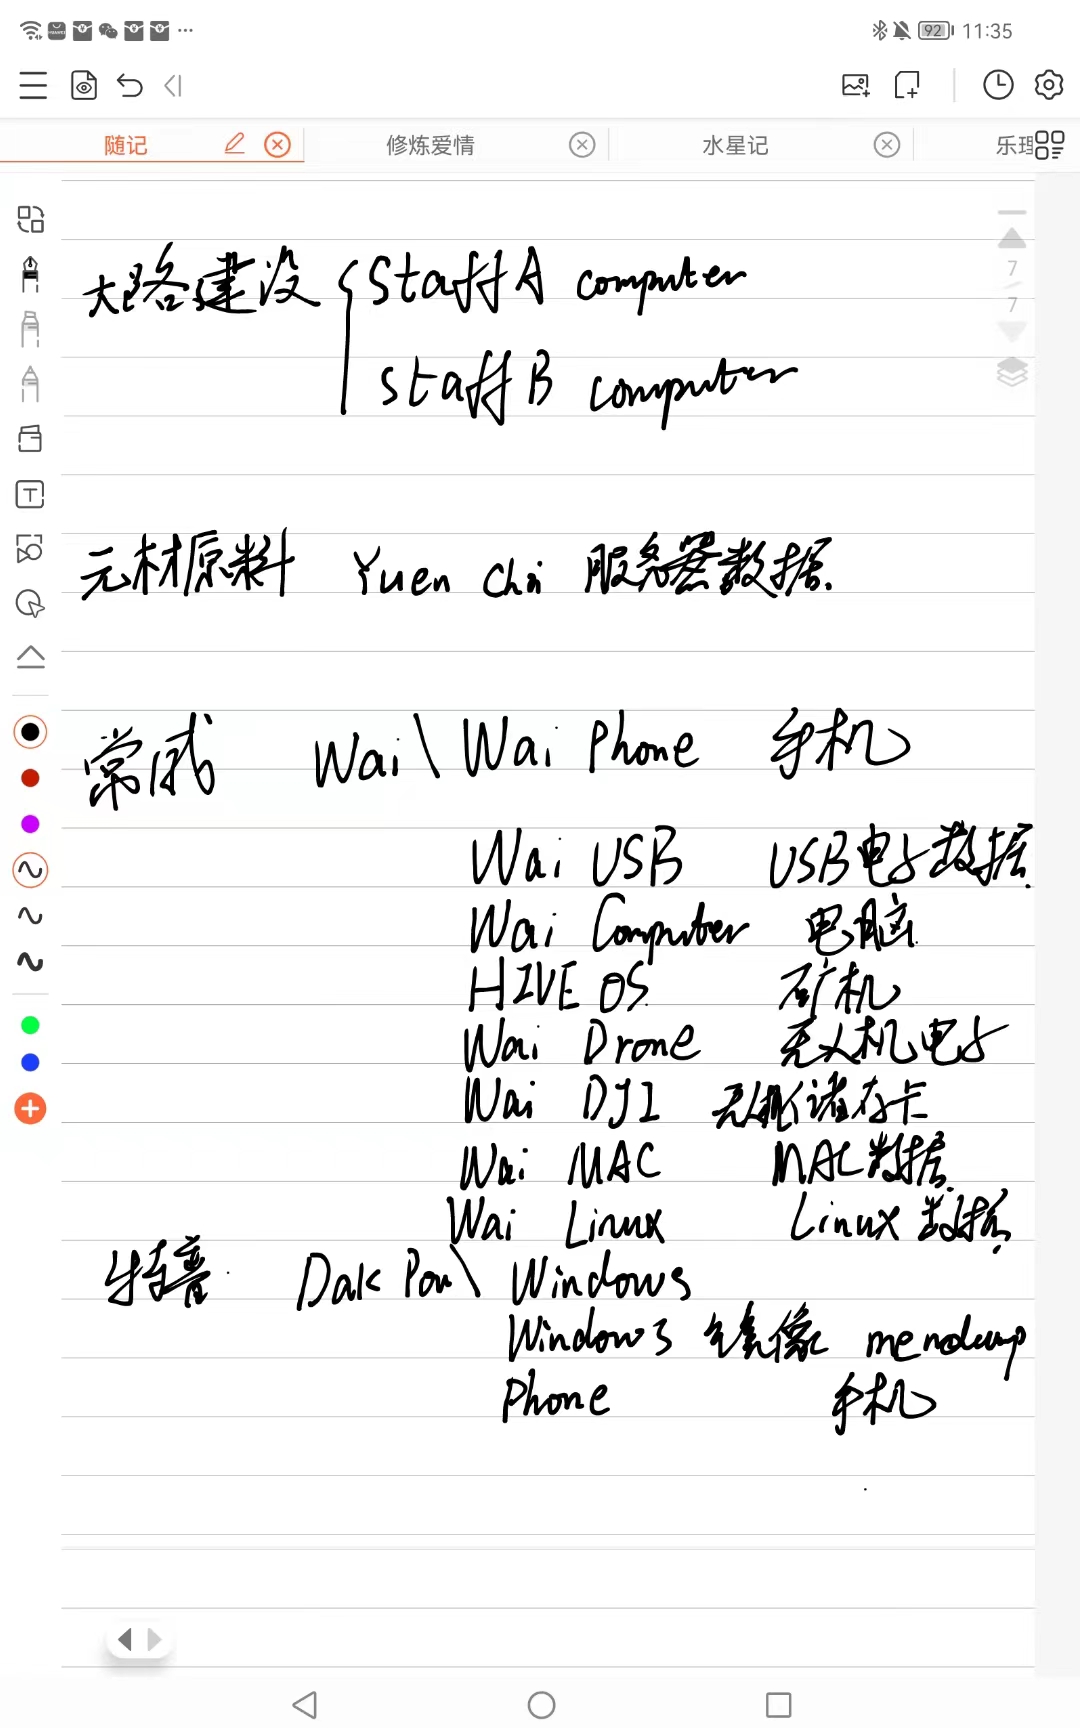 92 11:35
随记 修炼爱情 水星记 乐理
大路建设 { Staff A computer
Staff B computer
7
7
元材原料 Yuen Choi 服务器数据.
常威 Wai \ Wai Phone 手机
Wai USB USB电子数据
Wai Computer 电脑
HIVE OS 矿机
Wai Drone 无人机电子
Wai DJI 无人机储存卡
Wai MAC MAC数据
Wai Linux Linux数据
特普 Dak Pou \ Windows
Windows 镜像 memdump
Phone 手机